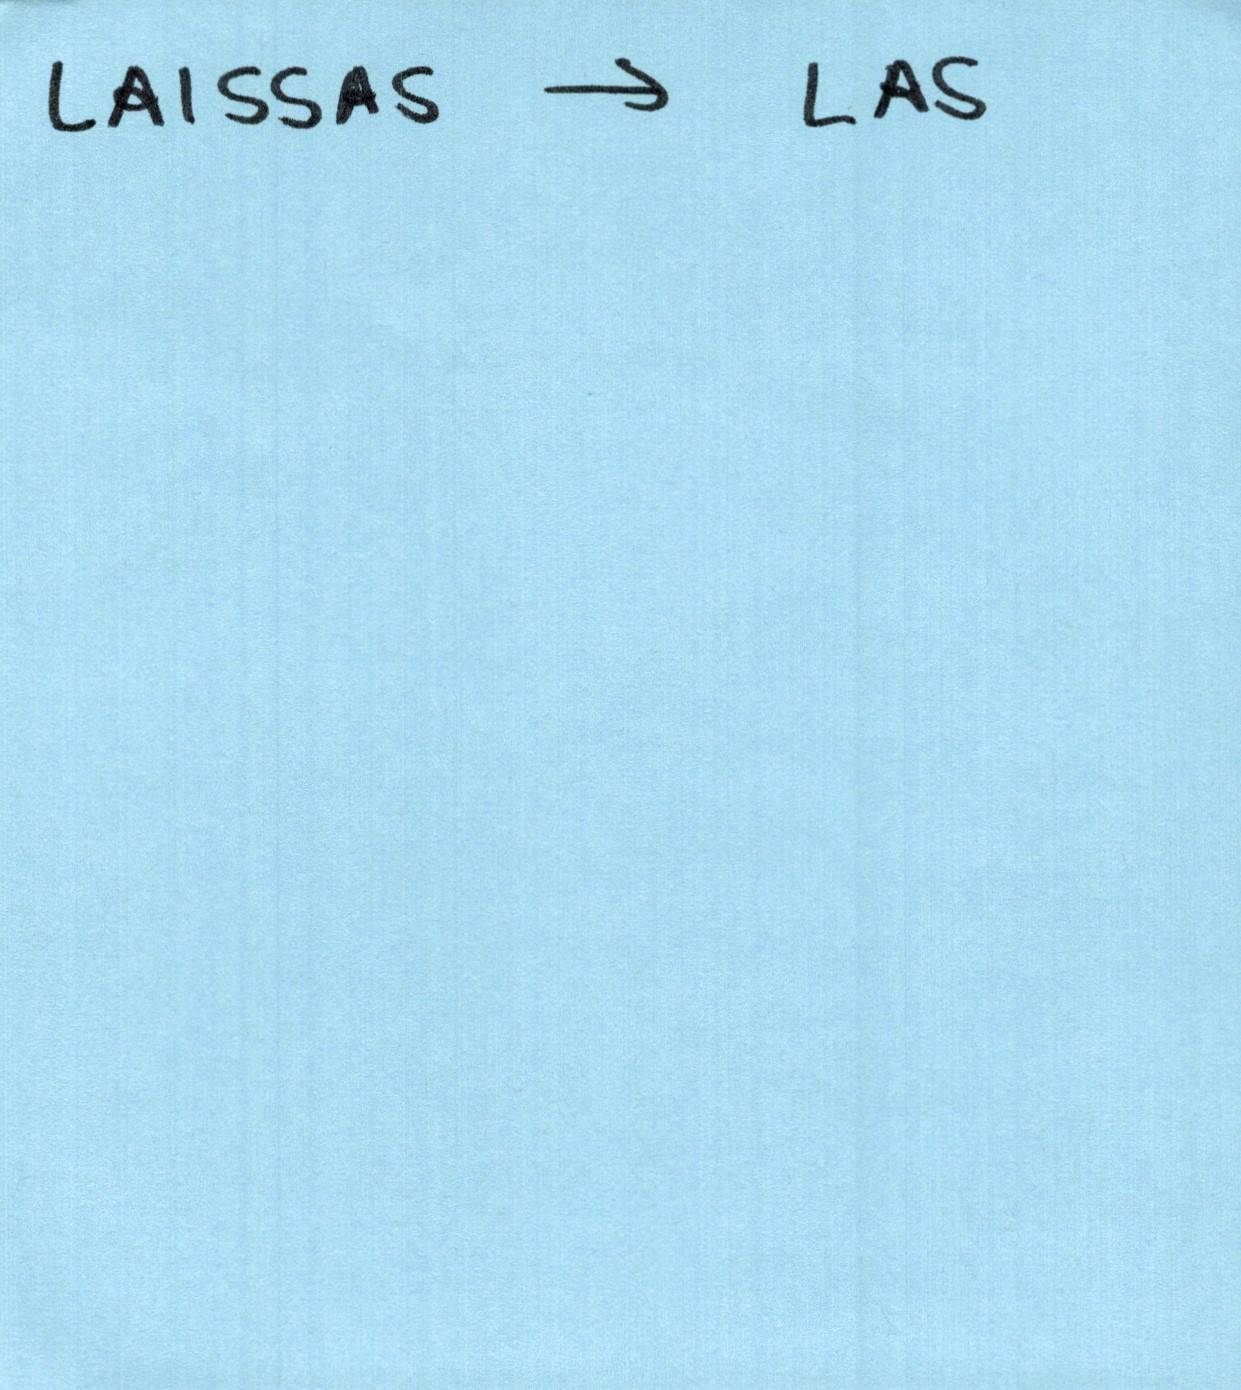 LAISSAS → LAS